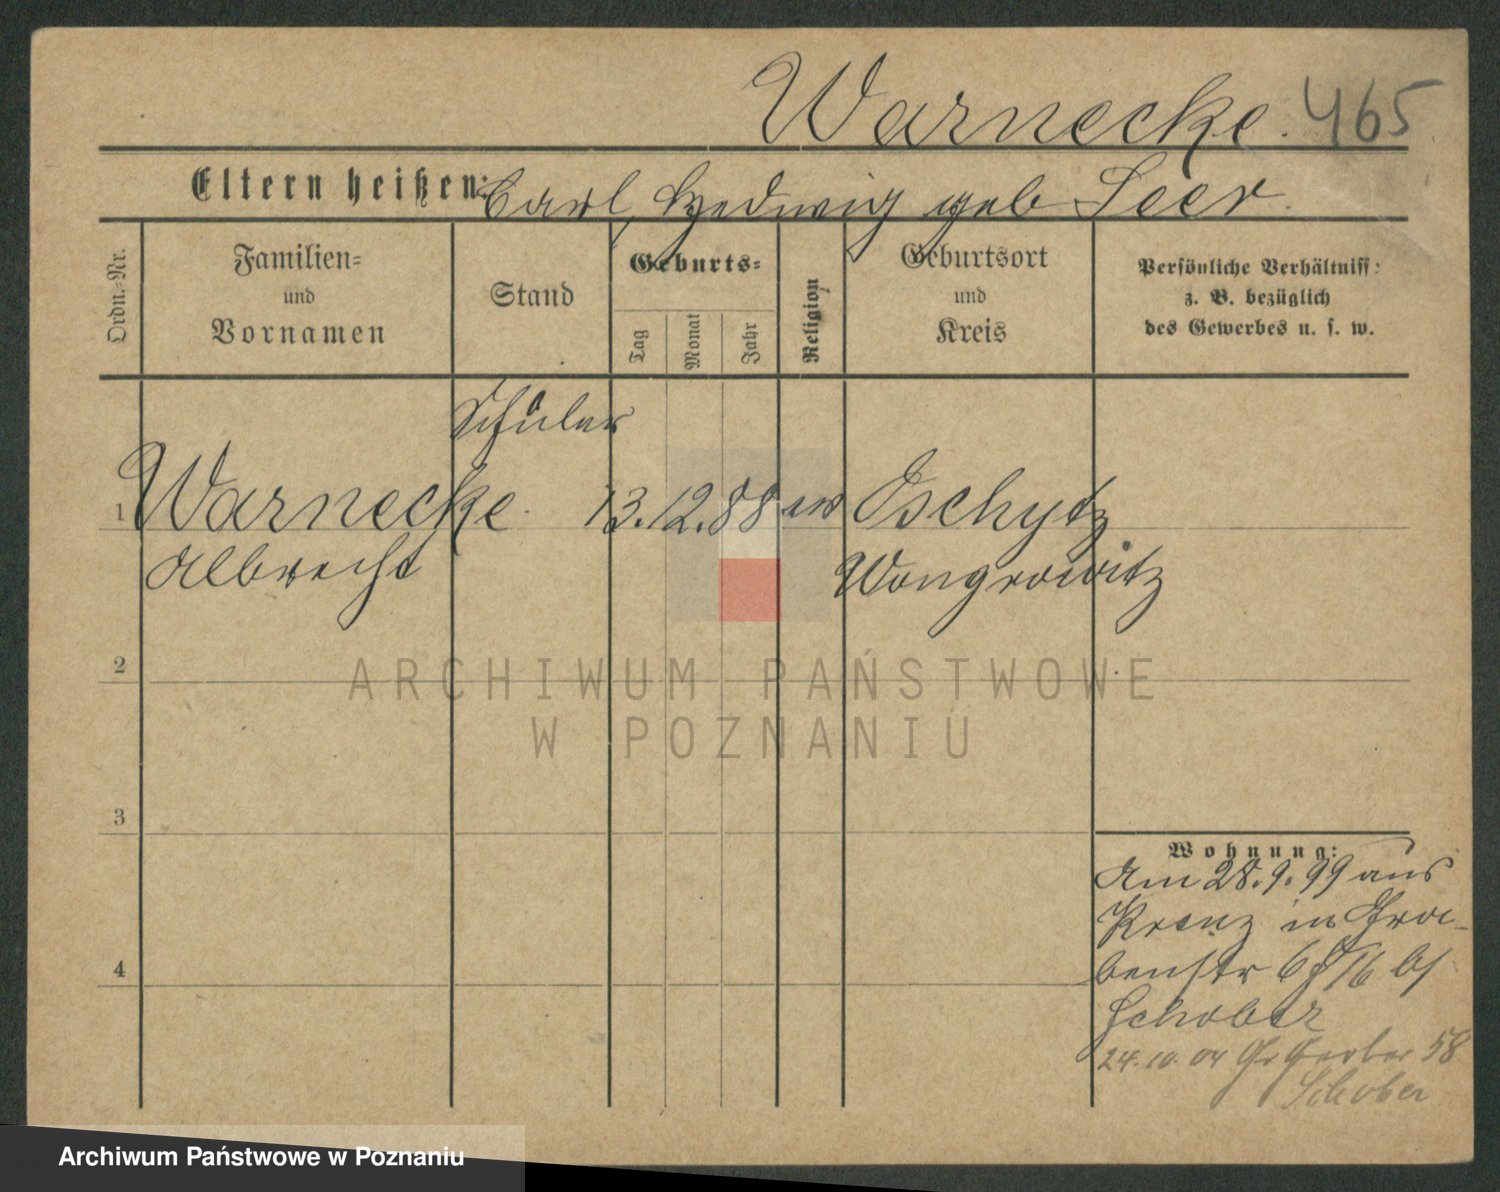 Warnecke. 465
Eltern heißen: Carl, Hedwig geb Seer.
Ordn.-Nr.
Familien-
und
Vornamen
Stand
Geburts-
Tag
Monat
Jahr
Religion
Geburtsort
und
Kreis
Persönliche Verhältniss:
z. B. bezüglich
des Gewerbes u. s. w.
Schüler
1 Warnecke 13. 12. 88 ev
Albrecht Wongrowitz
2
3
4
Wohnung:
Am 28. 9. 99 aus
in
benstr 6 16 bs
Schober
24. 10. 04 Gr Gerber 58
Schober
ARCHIWUM PAŃSTWOWE
W POZNANIU
Archiwum Państwowe w Poznaniu